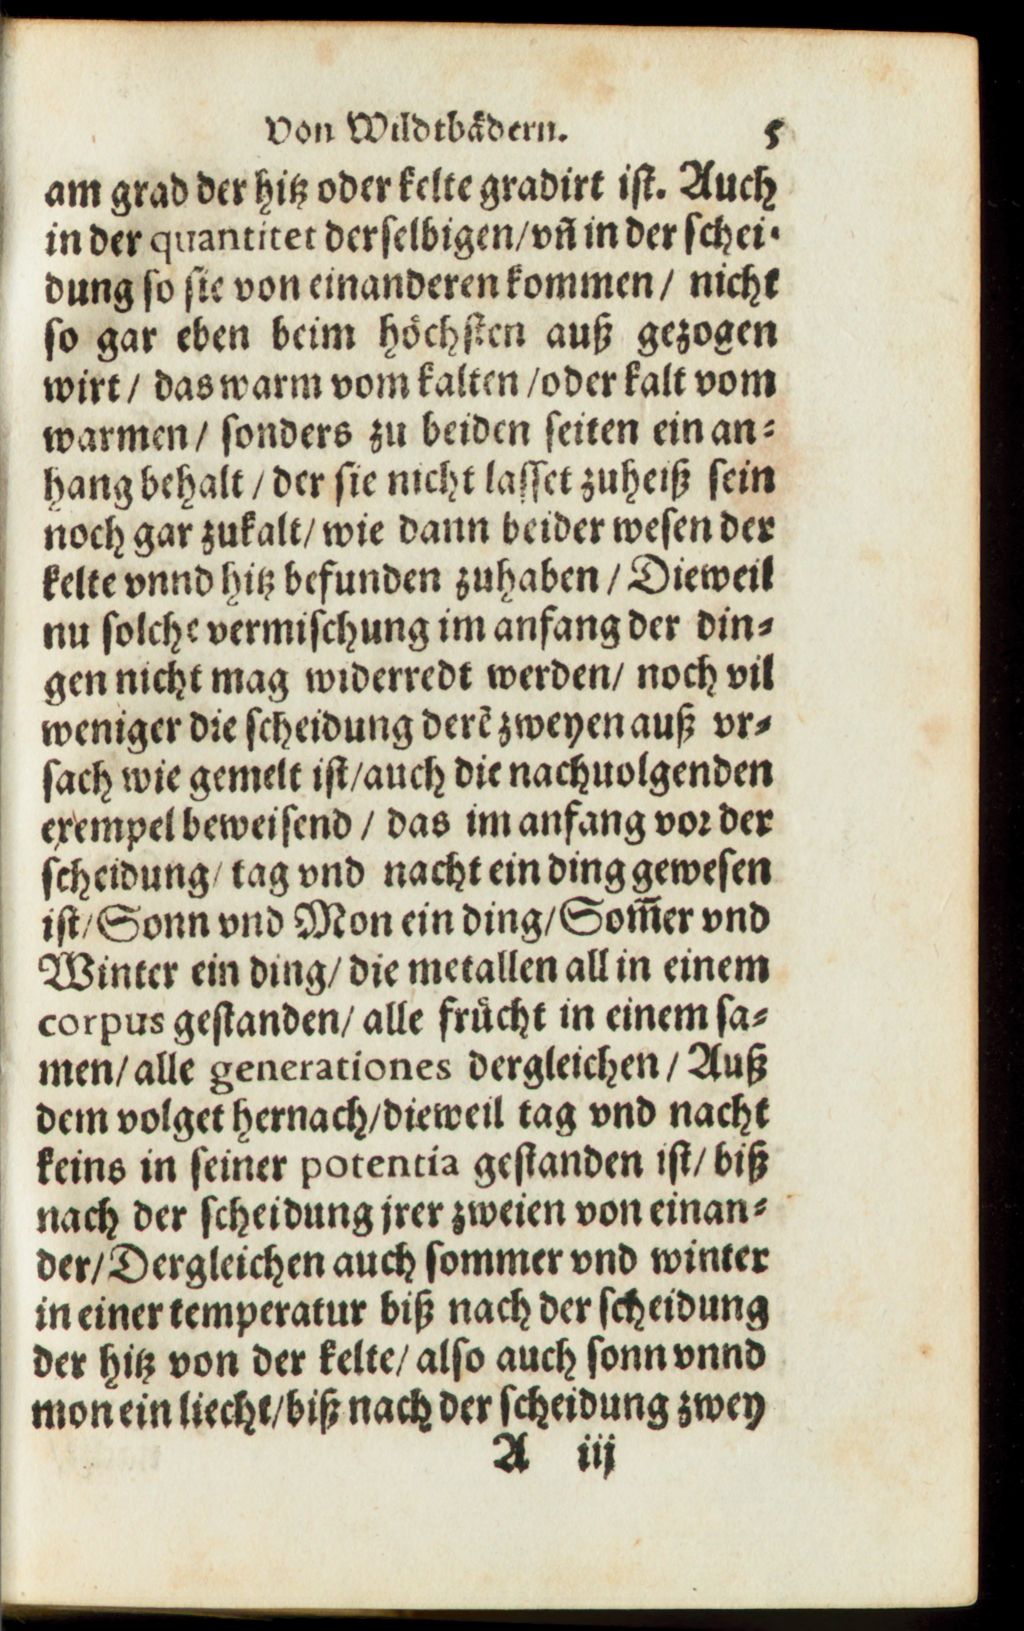 Von Wildtbådern. 5
am grad der hitz oder kelte gradirt ist. Auch
in der quantitet derselbigen/vñ in der schei-
dung so sie von einanderen kommen/ nicht
so gar eben beim höchsten auß gezogen
wirt/ das warm vom kalten/oder kalt vom
warmen/ sonders zu beiden seiten ein an-
hang behalt/der sie nicht lasset zuheiß sein
noch gar zukalt/wie dann beider wesen der
kelte vnnd hitz befunden zuhaben/Dieweil
nu solche vermischung im anfang der din-
gen nicht mag widerredt werden/ noch vil
weniger die scheidung derē zweyen auß vr-
sach wie gemelt ist/auch die nachuolgenden
exempel beweisend/ das im anfang vor der
scheidung/tag vnd nacht ein ding gewesen
ist/Sonn vnd Mon ein ding/Som̅er vnd
Winter ein ding/die metallen all in einem
corpus gestanden/alle frůcht in einem sa-
men/alle generationes dergleichen/Auß
dem volget hernach/dieweil tag vnd nacht
keins in seiner potentia gestanden ist/biß
nach der scheidung jrer zweien von einan-
der/Dergleichen auch sommer vnd winter
in einer temperatur biß nach der scheidung
der hitz von der kelte/also auch sonn vnnd
mon ein liecht/biß nach der scheidung zwey
A iij